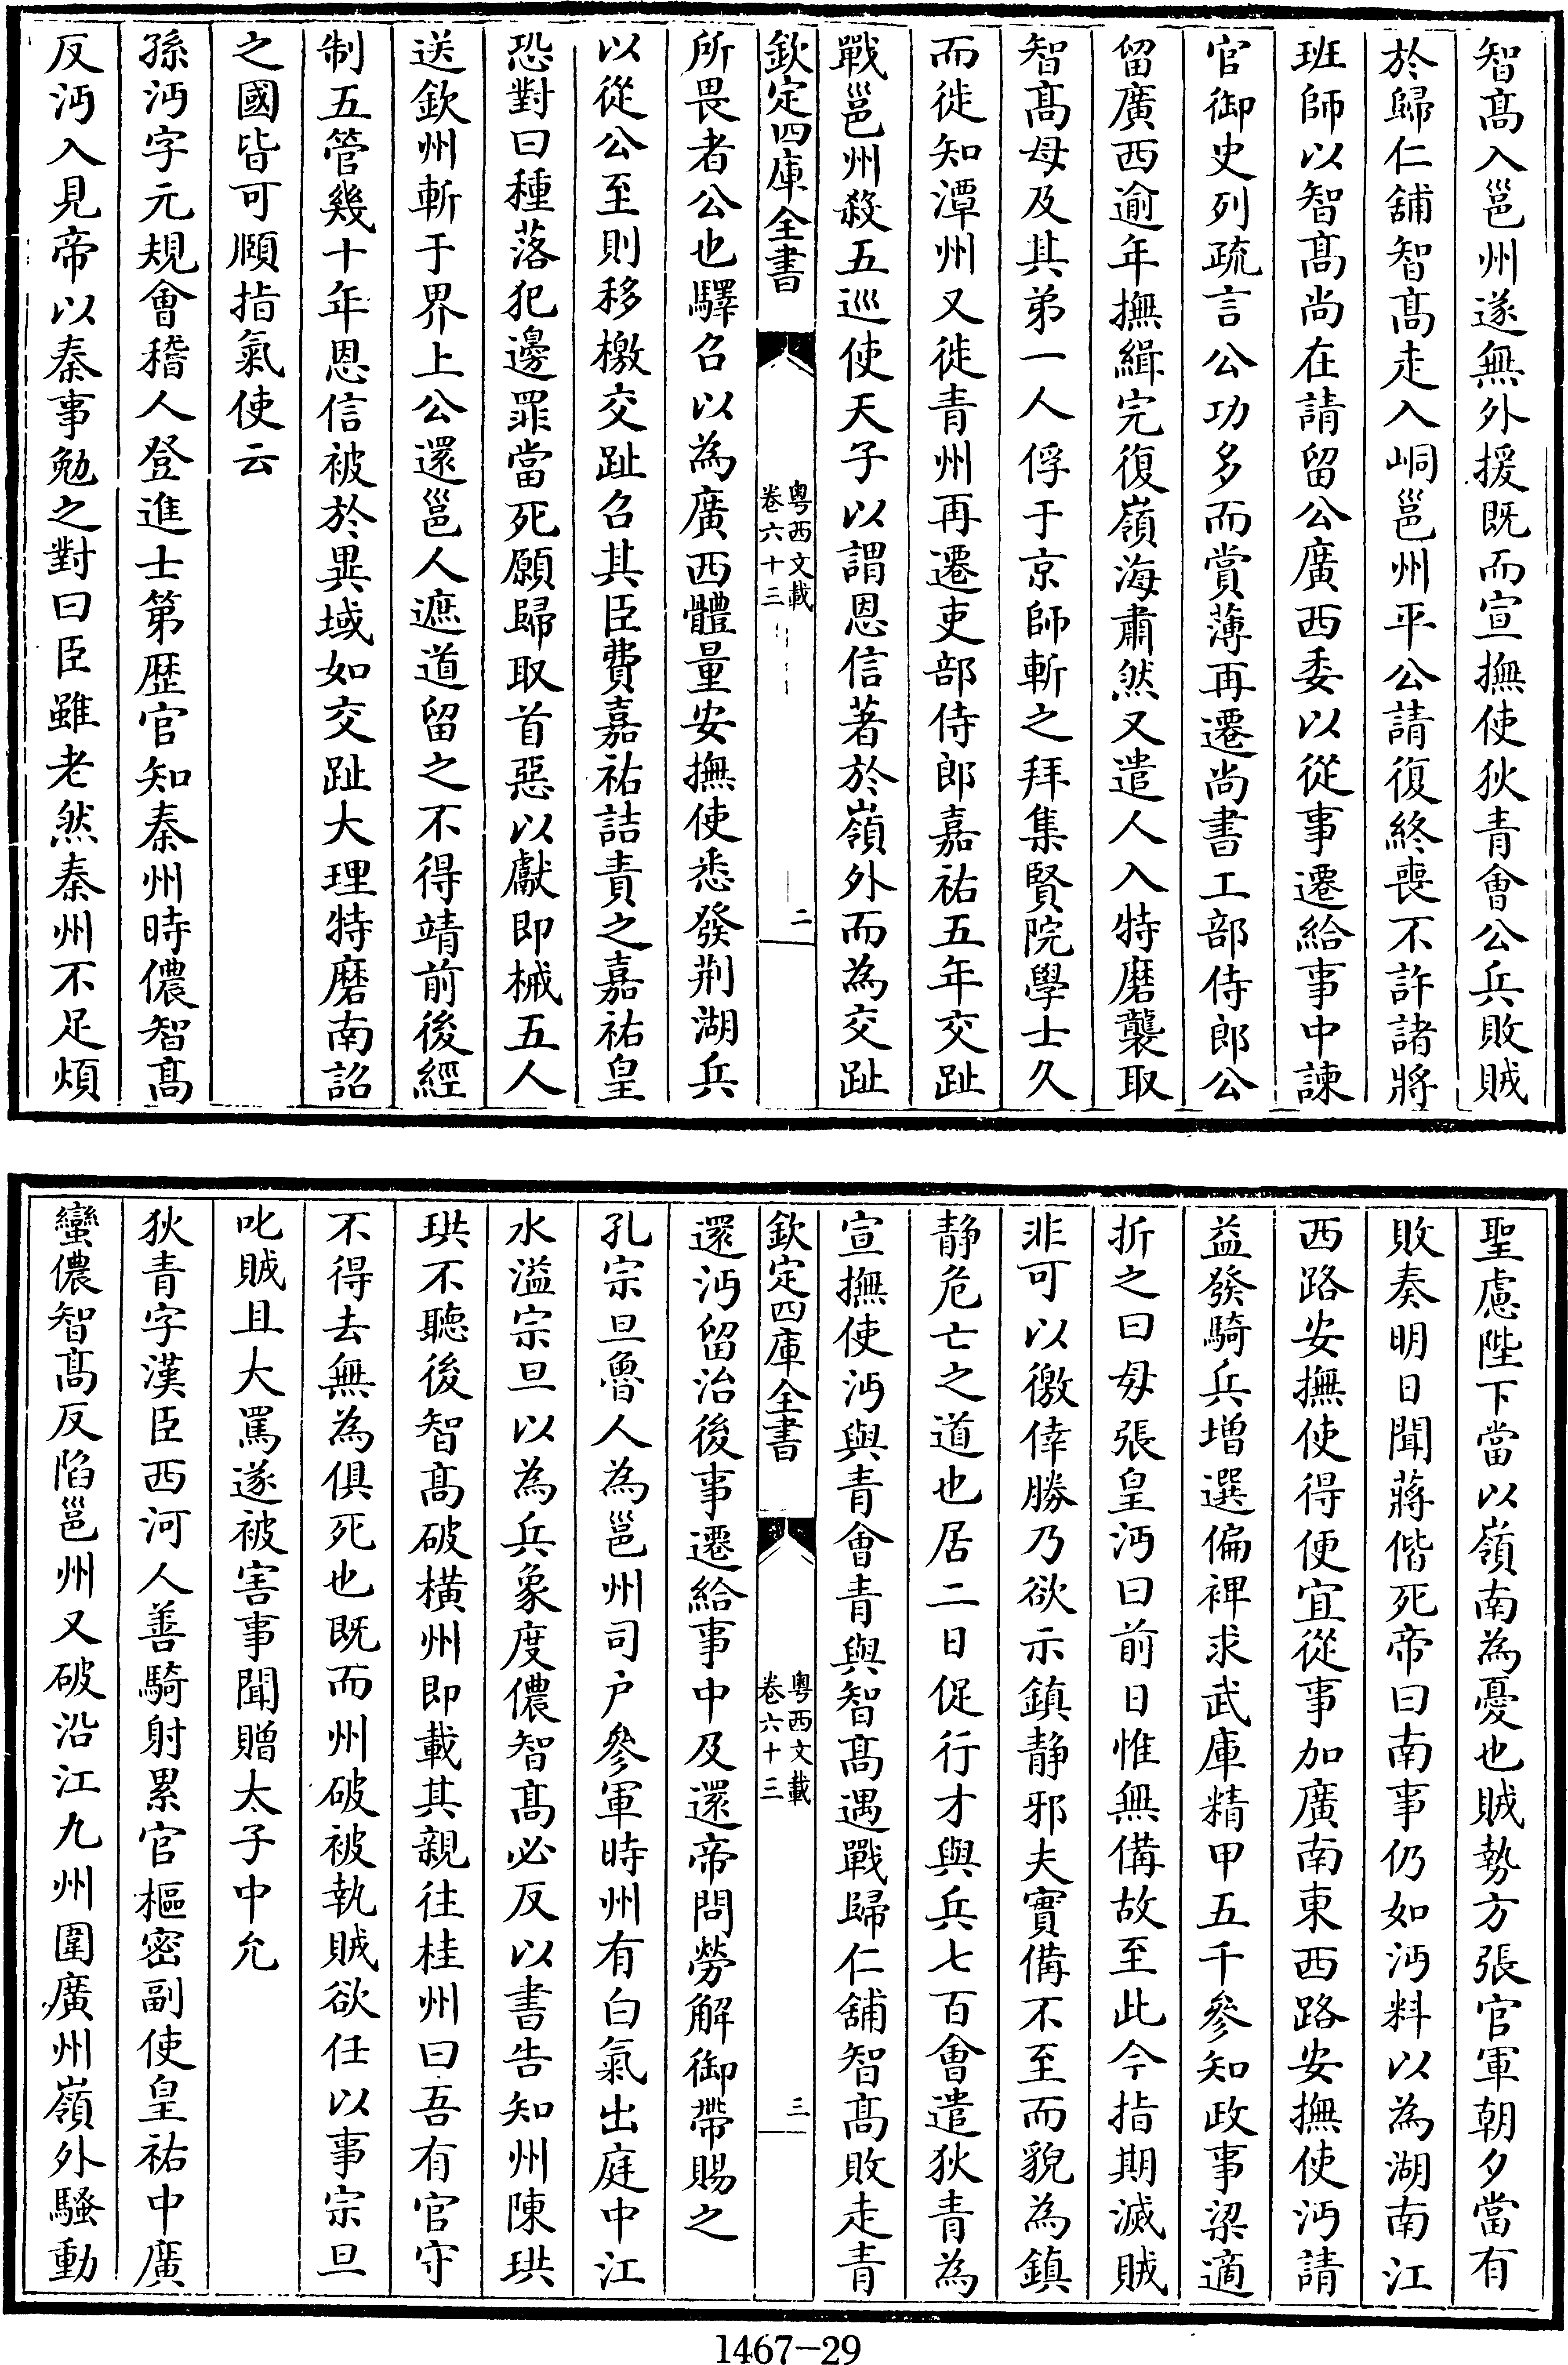 智髙入邕州遂無外援既而宣撫使狄青會公兵敗賊
於歸仁舖智髙走入峒邕州平公請復終喪不許諸將
班師以智髙尚在請留公廣西委以從事遷給事中諫
官御史列疏言公功多而賞薄再遷尚書工部侍郎公
留廣西逾年撫緝完復嶺海肅然又遣人入特磨襲取
智髙母及其弟一人俘于京師斬之拜集賢院學士久
而徙知潭州又徙青州再遷吏部侍郎嘉祐五年交趾
戰邕州殺五巡使天子以謂恩信著於嶺外而為交趾
欽定四庫全書
粤西文載
卷六十三
二
所畏者公也驛召以為廣西體量安撫使悉發荆湖兵
以從公至則移檄交趾召其臣費嘉祐詰責之嘉祐皇
恐對曰種落犯邊罪當死願歸取首惡以獻即械五人
送欽州斬于界上公還邕人遮道留之不得靖前後經
制五管幾十年恩信被於異域如交趾大理特磨南詔
之國皆可頤指氣使云
孫沔字元規會稽人登進士第歴官知秦州時儂智髙
反沔入見帝以秦事勉之對曰臣雖老然秦州不足煩
聖慮陛下當以嶺南為憂也賊勢方張官軍朝夕當有
敗奏明日聞蔣偕死帝曰南事仍如沔料以為湖南江
西路安撫使得便宜從事加廣南東西路安撫使沔請
益發騎兵增選偏裨求武庫精甲五千參知政事梁適
折之曰毋張皇沔曰前日惟無備故至此今指期滅賊
非可以徼倖勝乃欲示鎮静邪夫實備不至而貌為鎮
静危亡之道也居二日促行才與兵七百會遣狄青為
宣撫使沔與青會青與智髙遇戰歸仁舖智髙敗走青
欽定四庫全書
粤西文載
卷六十三
三
還沔留治後事遷給事中及還帝問勞解御帶賜之
孔宗旦魯人為邕州司户參軍時州有白氣出庭中江
水溢宗旦以為兵象度儂智髙必反以書告知州陳珙
珙不聽後智髙破横州即載其親往桂州曰吾有官守
不得去無為俱死也既而州破被執賊欲任以事宗旦
叱賊且大罵遂被害事聞贈太子中允
狄青字漢臣西河人善騎射累官樞密副使皇祐中廣
蠻儂智髙反陷邕州又破沿江九州圍廣州嶺外騷動
1467-29